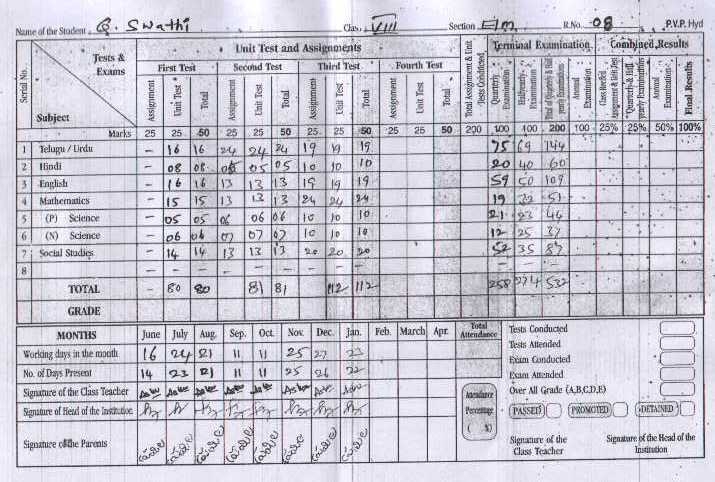 Name of the Student G. Swathi Class VIII Section E/m R.No 08 P.V.P. Hyd
Serial No. Tests & Exams Subject Unit Test and Assignments Total Assignment & Unit Tests Conditcted Terminal Examination Combined Results
First Test Second Test Third Test Fourth Test
Assignment Unit Test Total Assignment Unit Test Total Assignment Unit Test Total Assignment Unit Test Total Quarterly Examination Halfyearly Examination Total of Quarterly & Half yearly Examinations Annual Examination Quarterly & Half yearly Examinations Annual Examination Final Results
Marks 25 25 50 25 25 50 25 25 50 25 25 50 200 100 100 200 100 25% 25% 50% 100%
1 Telugu / Urdu - 16 16 24 24 24 19 19 19 75 69 144
2 Hindi - 08 08 05 05 05 10 10 10 20 40 60
3 English - 16 16 13 13 13 19 19 19 59 50 109
4 Mathematics - 15 15 13 13 13 24 24 24 19 32 51
5 (P) Science - 05 05 06 06 06 10 10 10 21 23 44
6 (N) Science - 06 06 07 07 07 10 10 10 12 25 37
7 Social Studies - 14 14 13 13 13 20 20 20 52 35 87
8 - - - - - - - - - -
TOTAL - 80 80 81 81 112 112 258 274 532
GRADE
MONTHS June July Aug. Sep. Oct. Nov. Dec. Jan. Feb. March Apr. Total Attendance
Working days in the month 16 24 21 11 11 25 27 23
No. of Days Present 14 23 21 11 11 25 26 22
Signature of the Class Teacher
Signature of Head of the Institution
Signature of the Parents
Attendance Percentage ( %)
Tests Conducted
Tests Attended
Exam Conducted
Exam Attended
Over All Grade (A,B,C,D,E)
PASSED PROMOTED DETAINED
Signature of the Class Teacher Signature of the Head of the Institution